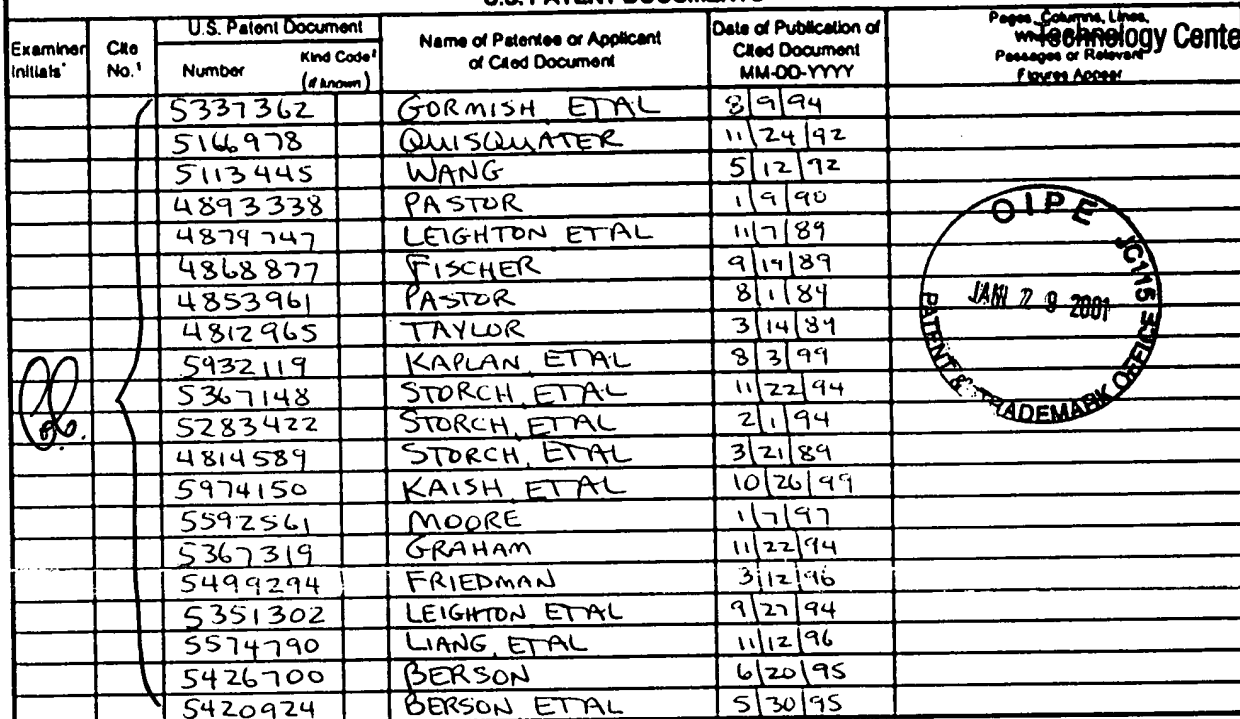 U.S. PATENT DOCUMENTS
Examiner Initials* Cite No.¹ U.S. Patent Document Number Kind Code² (if known) Name of Patentee or Applicant of Cited Document Date of Publication of Cited Document MM-DD-YYYY Pages, Columns, Lines, Passages or Relevant Figures Appear
Technology Cente
5337362 GORMISH, ET AL 8 9 94
5166978 QUISQUATER 11 24 92
5113445 WANG 5 12 92
4893338 PASTOR 1 9 90
4879747 LEIGHTON ET AL 11 7 89
4868877 FISCHER 9 19 89
4853961 PASTOR 8 1 89
4812965 TAYLOR 3 14 89
5932119 KAPLAN, ET AL 8 3 99
5367148 STORCH, ET AL 11 22 94
5283422 STORCH, ET AL 2 1 94
4814589 STORCH, ET AL 3 21 89
5974150 KAISH, ET AL 10 26 99
5592561 MOORE 1 7 97
5367319 GRAHAM 11 22 94
5499294 FRIEDMAN 3 12 96
5351302 LEIGHTON ET AL 9 27 94
5574790 LIANG, ET AL 11 12 96
5426700 BERSON 6 20 95
5420924 BERSON ET AL 5 30 95
OIPE JC115
JAN 2001
PATENT & TRADEMARK OFFICE